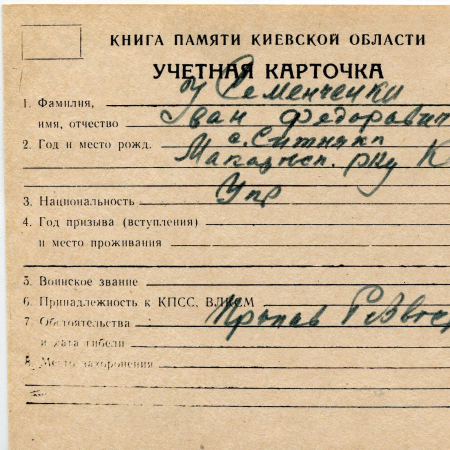 КНИГА ПАМЯТИ КИЕВСКОЙ ОБЛАСТИ
УЧЕТНАЯ КАРТОЧКА
1. Фамилия, Семенченки
имя, отчество Іван Федорович
2. Год и место рожд. с. Ситняки
3. Национальность Укр
4. Год призыва (вступления)
и место проживания
5. Воинское звание
6. Принадлежность к КПСС, ВЛКСМ
7. Обстоятельства Пропав
и дата гибели
8. Место захоронения